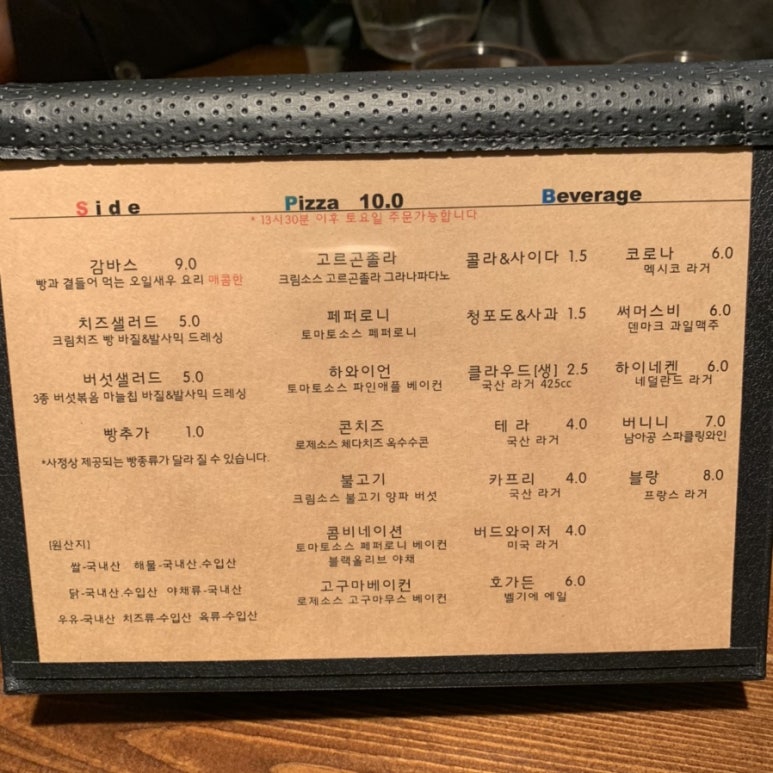 Side
감바스 9.0
빵과 곁들어 먹는 오일새우 요리 매콤한
치즈샐러드 5.0
크림치즈 빵 바질&발사믹 드레싱
버섯샐러드 5.0
3종 버섯볶음 마늘칩 바질&발사믹 드레싱
빵추가 1.0
*사정상 제공되는 빵종류가 달라 질 수 있습니다.
[원산지]
쌀-국내산 해물-국내산.수입산
닭-국내산.수입산 야채류-국내산
우유-국내산 치즈류-수입산 육류-수입산
Pizza 10.0
* 13시30분 이후 토요일 주문가능합니다
고르곤졸라
크림소스 고르곤졸라 그라나파다노
페퍼로니
토마토소스 페퍼로니
하와이언
토마토소스 파인애플 베이컨
콘치즈
로제소스 체다치즈 옥수수콘
불고기
크림소스 불고기 양파 버섯
콤비네이션
토마토소스 페퍼로니 베이컨
블랙올리브 야채
고구마베이컨
로제소스 고구마무스 베이컨
Beverage
콜라&사이다 1.5
청포도&사과 1.5
클라우드[생] 2.5
국산 라거 425cc
테 라 4.0
국산 라거
카프리 4.0
국산 라거
버드와이저 4.0
미국 라거
호가든 6.0
벨기에 에일
코로나 6.0
멕시코 라거
써머스비 6.0
덴마크 과일맥주
하이네켄 6.0
네덜란드 라거
버니니 7.0
남아공 스파클링와인
블랑 8.0
프랑스 라거